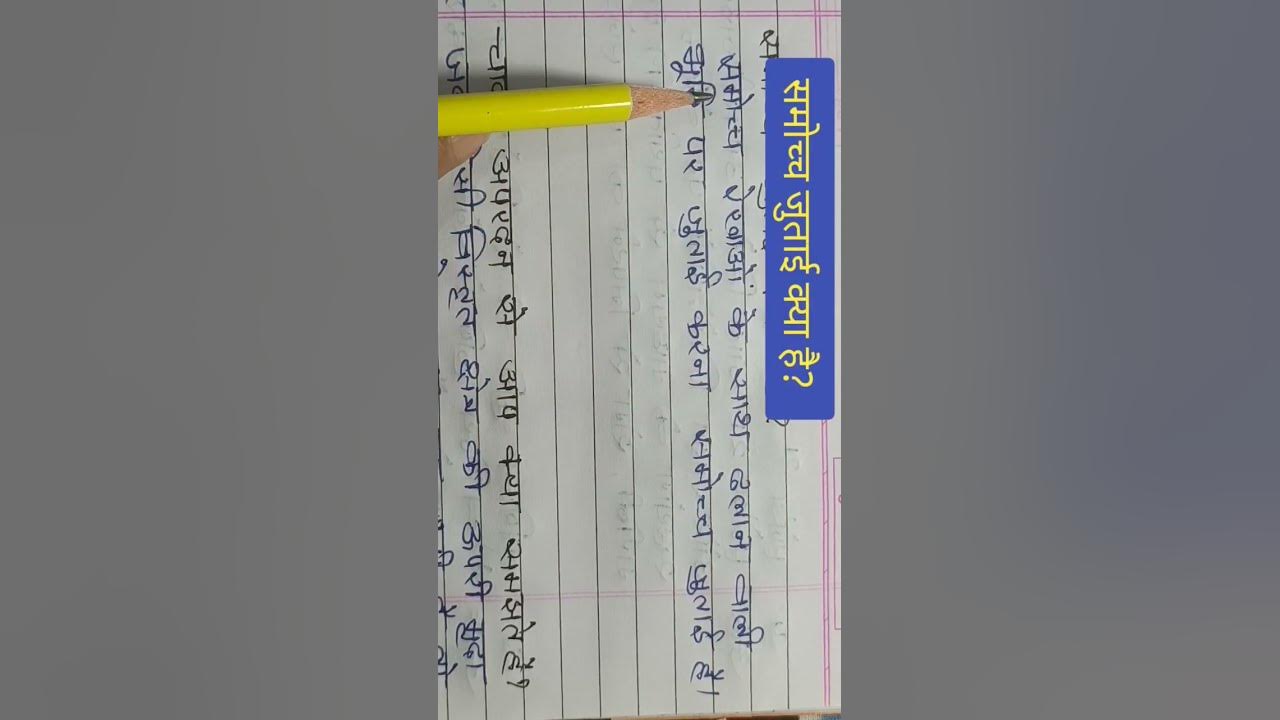 समोच्च जुताई क्या है?
समोच्च रेखाओं के साथ ढलान वाली
भूमि पर जुताई करना समोच्च जुताई है।
अपरदन से आप क्या समझते हैं?
विस्तृत क्षेत्र की ऊपरी मृदा